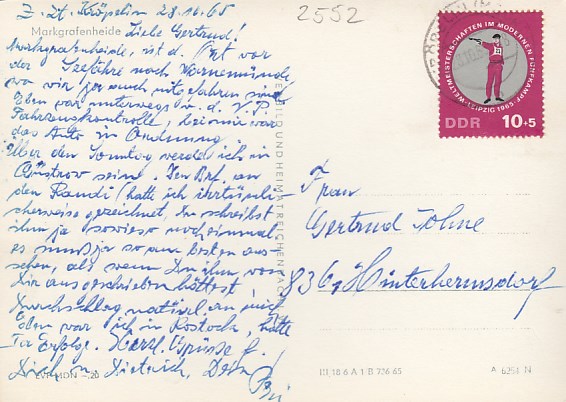 z. Zt. Kröpelin 28.10.65
2552
Markgrafenheide
Liebe Gertrud!
Markgrafenheide, ist d. Ort vor
der Seefähre nach Warnemünde,
wo wir ja auch mitgefahren sind.
Eben war unterwegs v. d. V.P.
Fahrzeugkontrolle, bei mir war
das Auto in Ordnung
Über den Sonntag werde ich in
Güstrow sein. Den Brf. an
den Randi (hatte ich irrtümli-
cherweise gezeichnet, Du schreibst
ihm ja sowieso noch einmal
es muß ja so am besten aus-
sehen, als wenn Du ihn von
Dir aus geschrieben hättest!
Durchschlag natürl. an mich
Eben war ich in Rostock, hatte
Erfolge. Herzl. Grüsse f.
Dich, u. Dietrich, Dein
BILD UND HEIMAT REICHENBACH
EVP MDN -,20
WELTMEISTERSCHAFTEN IM MODERNEN FÜNFKAMPF
LEIPZIG 1965
DDR 10+5
Frau
Gertrud
8361 Hinterhermsdorf
III 18 6 A 1 B 726 65
A 6254 N